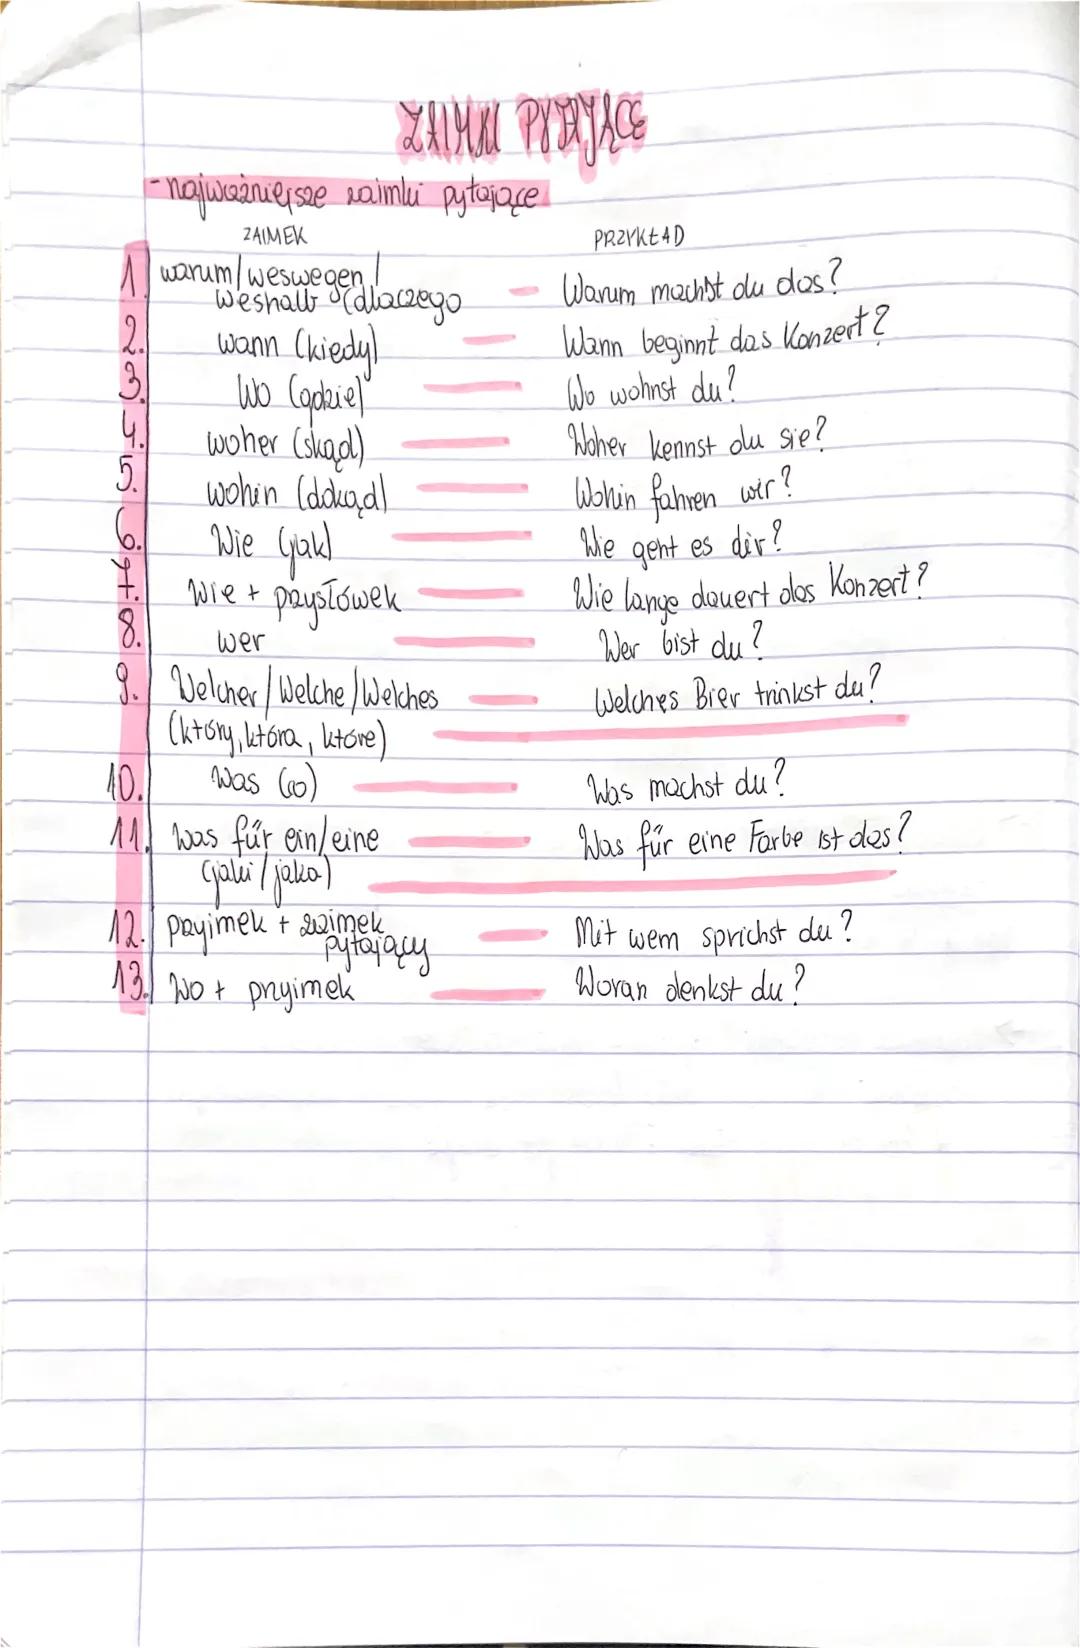 ZAIMKI PYTAJĄCE
- najważniejsze zaimki pytające
ZAIMEK PRZYKŁAD
1. warum/weswegen/ Warum machst du das?
weshalb (dlaczego
2. wann (kiedy) Wann beginnt das Konzert?
3. Wo (gdzie) Wo wohnst du?
4. woher (skąd) Woher kennst du sie?
5. wohin (dokąd) Wohin fahren wir?
6. Wie (jak) Wie geht es dir?
7. Wie + przysłówek Wie lange dauert das Konzert?
8. wer Wer bist du?
9. Welcher/Welche/Welches Welches Bier trinkst du?
(który, która, które)
10. Was (co) Was machst du?
11. was für ein/eine Was für eine Farbe ist das?
(jaki/jaka)
12. przyimek + zaimek Mit wem sprichst du?
pytający
13. Wo + przyimek Woran denkst du?